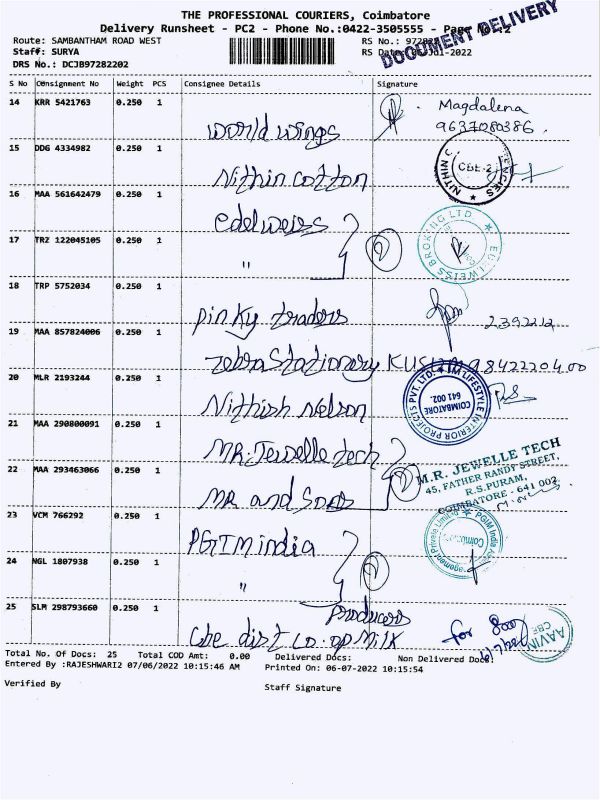 THE PROFESSIONAL COURIERS, Coimbatore
Delivery Runsheet - PC2 - Phone No.:0422-3505555 - Page No.:2
DOCUMENT DELIVERY
Route: SAMBANTHAM ROAD WEST
Staff: SURYA
DRS No.: DCJB97282202
S No Consignment No Weight PCS Consignee Details Signature
14 KRR 5421763 0.250 1 World Wings Magdalena
9637080386.
15 DDG 4334982 0.250 1 Nithin Cotton NITHIN CBE-2
16 MAA 561642479 0.250 1 edelweiss EDELWEISS BROKING LTD.
17 TRZ 122045105 0.250 1 " 2
18 TRP 5752034 0.250 1 Pinky traders 2392212
19 MAA 857824006 0.250 1 Zebra Stationery 9842220400
20 MLR 2193244 0.250 1 Nithish Nelson LIFESTYLE INTERIOR PROJECTS PVT. LTD. COIMBATORE 641 002.
21 MAA 290800091 0.250 1 MR. Jewelle tech M.R. JEWELLE TECH
45, FATHER RANDY STREET,
R.S.PURAM,
COIMBATORE - 641 002
22 MAA 293463066 0.250 1 MR and Sons 2
23 VCM 766292 0.250 1 PGIM india PGIM India
24 NGL 1807938 0.250 1 " 2
25 SLM 298793660 0.250 1 Cbe dist co.op Milk Producers for AAVIN CBE
Total No. Of Docs: 25 Total COD Amt: 0.00 Delivered Docs: Non Delivered Docs:
Entered By :RAJESHWARI2 07/06/2022 10:15:46 AM Printed On: 06-07-2022 10:15:54
Verified By Staff Signature